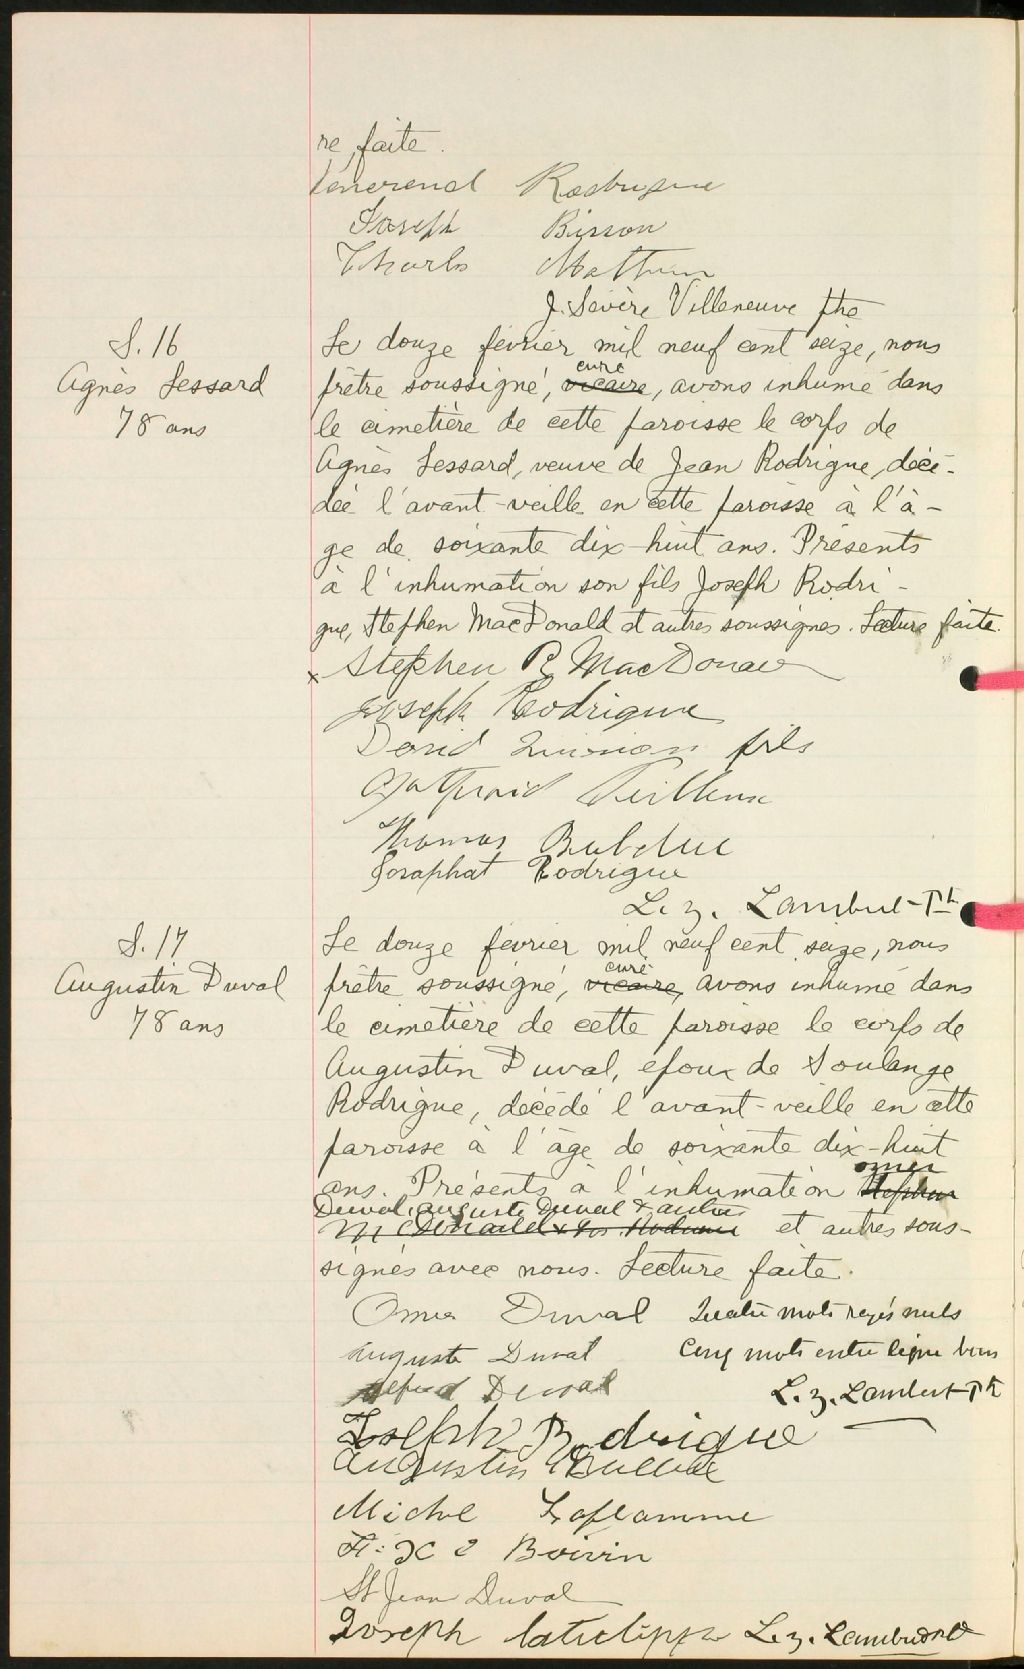 re faite.
Vénérend Rodrigue
Joseph Bisson
Charles Mathieu
J. Sévère Villeneuve ptre
S. 16
Agnès Lessard
78 ans
Le douze février mil neuf cent seize, nous
curé
prêtre soussigné, vicaire, avons inhumé dans
le cimetière de cette paroisse le corps de
Agnès Lessard, veuve de Jean Rodrigue, décé-
dée l'avant-veille en cette paroisse à l'â-
ge de soixante dix-huit ans. Présents
à l'inhumation son fils Joseph Rodri-
gue, Stephen MacDonald et autres soussignés. Lecture faite.
x Stephen R MacDonald
Joseph Rodrigue
David fils
Veilleux
Thomas
Josaphat Rodrigue
L. z. Lambert Ptr
S. 17
Augustin Duval
78 ans
Le douze février mil neuf cent seize, nous
curé
prêtre soussigné, vicaire, avons inhumé dans
le cimetière de cette paroisse le corps de
Augustin Duval, époux de Soulange
Rodrigue, décédé l'avant-veille en cette
paroisse à l'âge de soixante dix-huit
omer
ans. Présents à l'inhumation Stephen
Duval, Auguste Duval & autres
McDonald & Jos. Rodrigue et autres sous-
signés avec nous. Lecture faite.
Omer Duval Quatre mots rayés nuls
Auguste Duval Cinq mots entre ligne bons
Duval L. z. Lambert Ptr
Joseph Rodrigue
Augustin
Michel Laflamme
F: X Boivin
St Jean Duval
Joseph L. z. Lambert